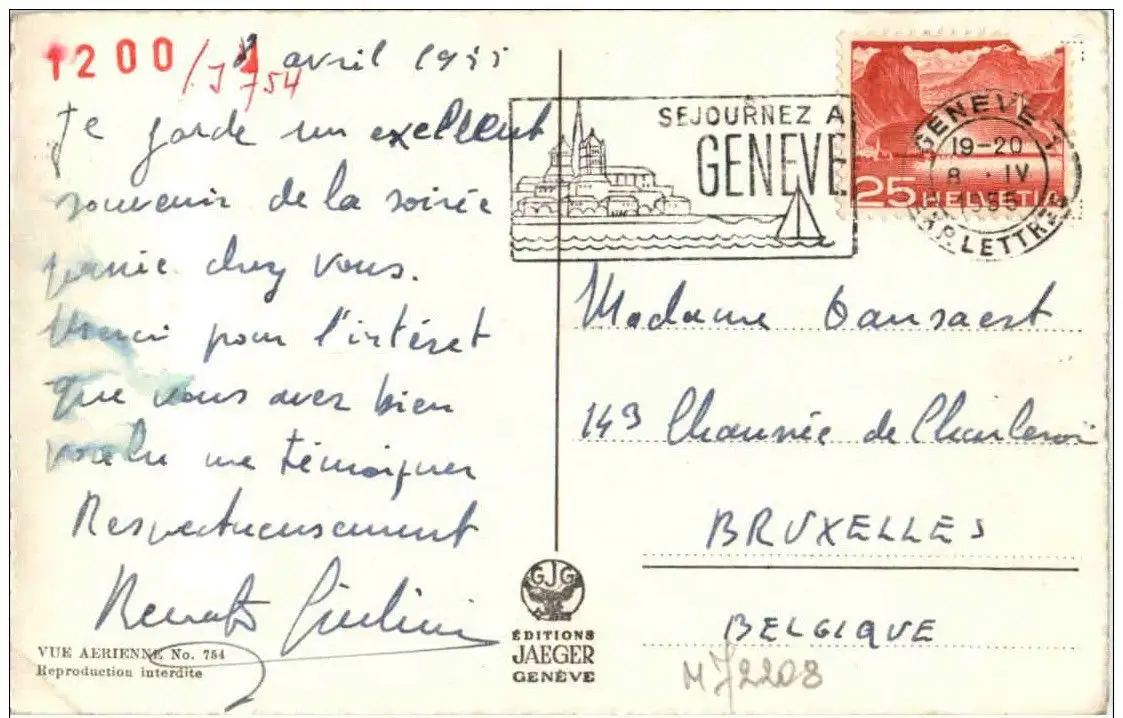 1200 / J 754
8 avril 1955
Je garde un excellent
souvenir de la soirée
passée chez vous.
Merci pour l'intéret
que vous avez bien
voulu me témoigner
Respectueusement
Renato
VUE AERIENNE No. 754
Reproduction interdite
GJG
ÉDITIONS
JAEGER
GENÈVE
SEJOURNEZ A
GENEVE
25 HELVETIA
GENEVE 1
19-20
8 . IV
1955
EXP. LETTRES
Madame Dansaert
149 Chaussée de Charleroi
BRUXELLES
BELGIQUE
M72208